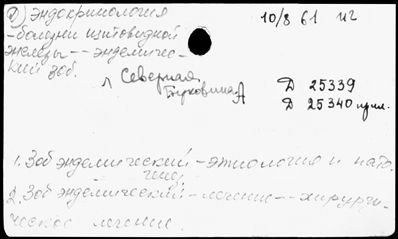 2) Эндокринология
10/8 61 иг
- болезни щитовидной
железы -- эндемичес-
кий зоб.
л Северная
Буковина А
Д 25339
Д 25340 прил.
1. Зоб эндемический - этиология и пато-
генез
2. Зоб эндемический -- лечение -- хирурги-
ческое лечение.